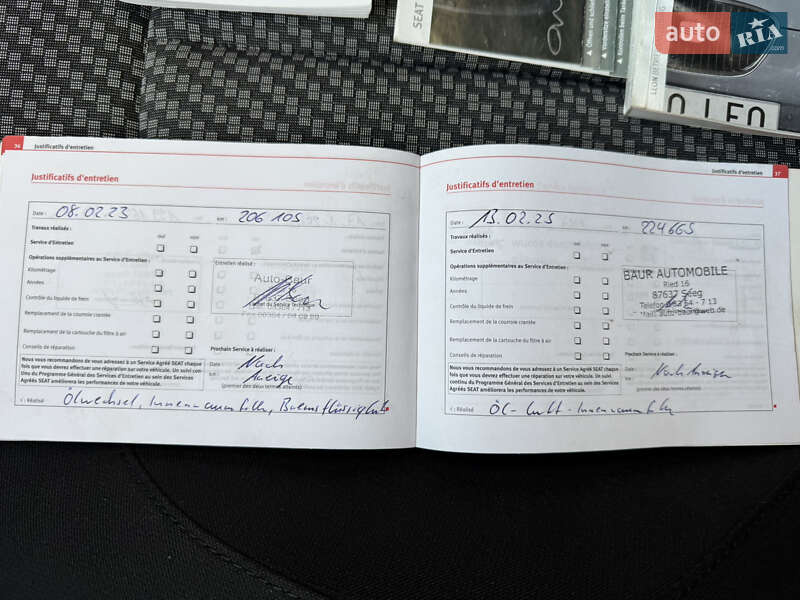 SEAT
auto RIA .com
36 Justificatifs d'entretien
Justificatifs d'entretien
Date : 08.02.23 km : 206 105
Travaux réalisés : oui non
Service d'Entretien
Opérations supplémentaires au Service d'Entretien :
Kilométrage
Années
Contrôle du liquide de frein
Remplacement de la courroie crantée
Remplacement de la cartouche du filtre à air
Conseils de réparation
Entretien réalisé :
Auto-Baur
Cachet du Service Technique
Prochain Service à réaliser :
Date : Nach
km : Anzeige
(premier des deux termes atteints)
Nous vous recommandons de vous adressez à un Service Agréé SEAT chaque
fois que vous devrez effectuer une réparation sur votre véhicule. Un suivi conti-
nu du Programme Général des Services d'Entretien au sein des Services
Agréés SEAT améliorera les performances de votre véhicule.
Réalisé Ölwechsel, Innenraumfilter, Bremsflüssigkeit
Justificatifs d'entretien 37
Justificatifs d'entretien
Date : 13.02.25 km : 224665
Travaux réalisés : oui non
Service d'Entretien
Opérations supplémentaires au Service d'Entretien :
Kilométrage
Années
Contrôle du liquide de frein
Remplacement de la courroie crantée
Remplacement de la cartouche du filtre à air
Conseils de réparation
BAUR AUTOMOBILE
Ried 16
87637 Seeg
Prochain Service à réaliser :
Date :
km : Nach Anzeige
(premier des deux termes atteints)
Nous vous recommandons de vous adressez à un Service Agréé SEAT chaque
fois que vous devrez effectuer une réparation sur votre véhicule. Un suivi
continu du Programme Général des Services d'Entretien au sein des Services
Agréés SEAT améliorera les performances de votre véhicule.
Réalisé Öl - Luft - Innenraumfilter